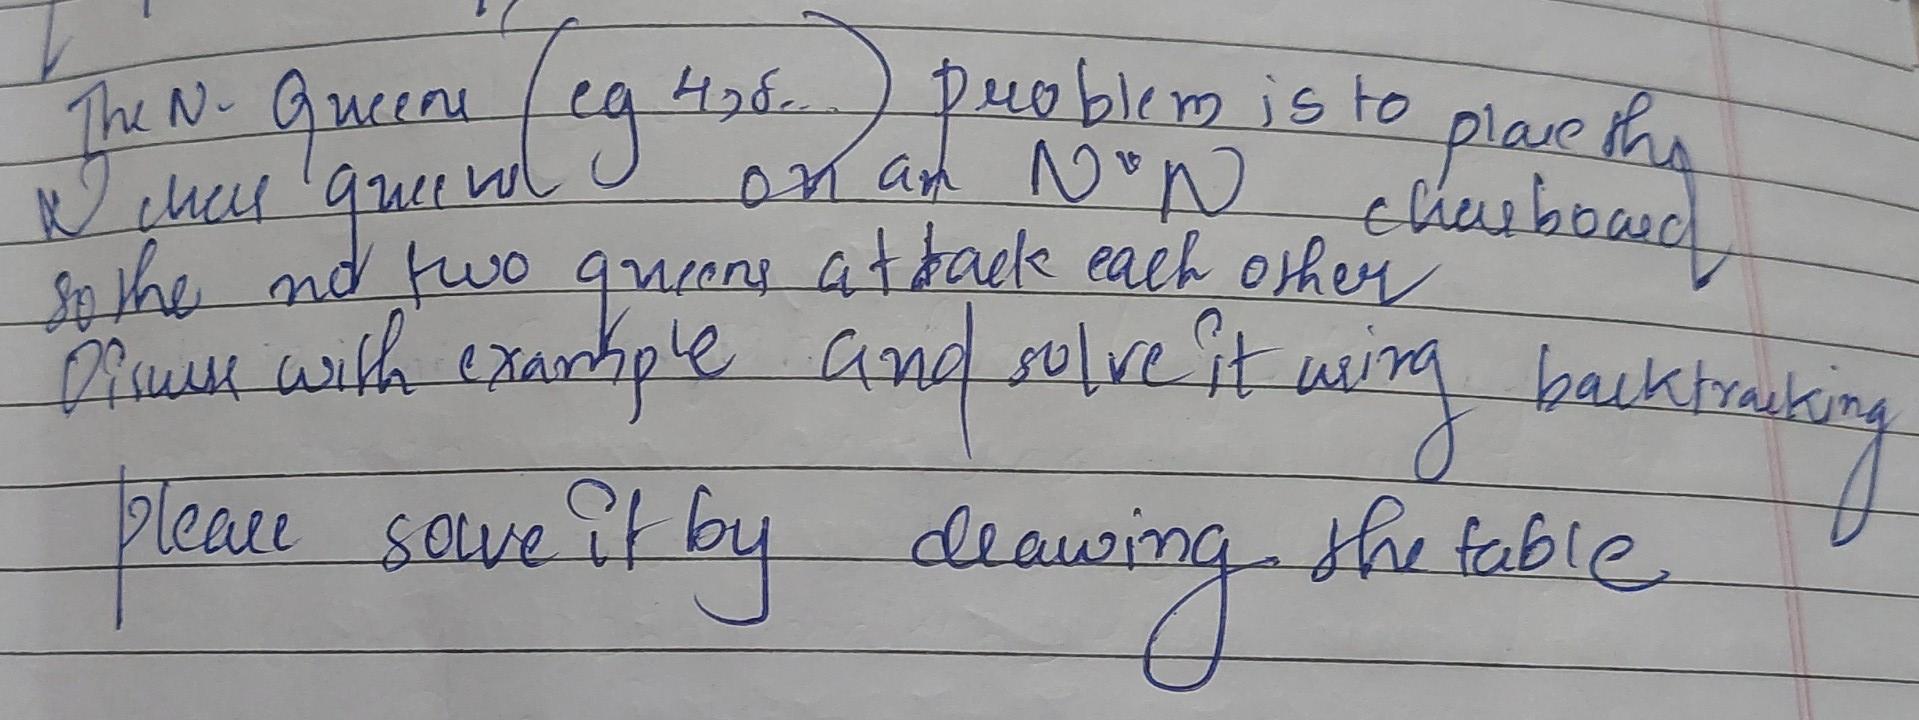 The N- Queens (eg 4,8...) problem is to place the
N chess queens on an N*N chessboard
so the no two queens attack each other
Discuss with example and solve it using backtracking
please solve it by drawing the table